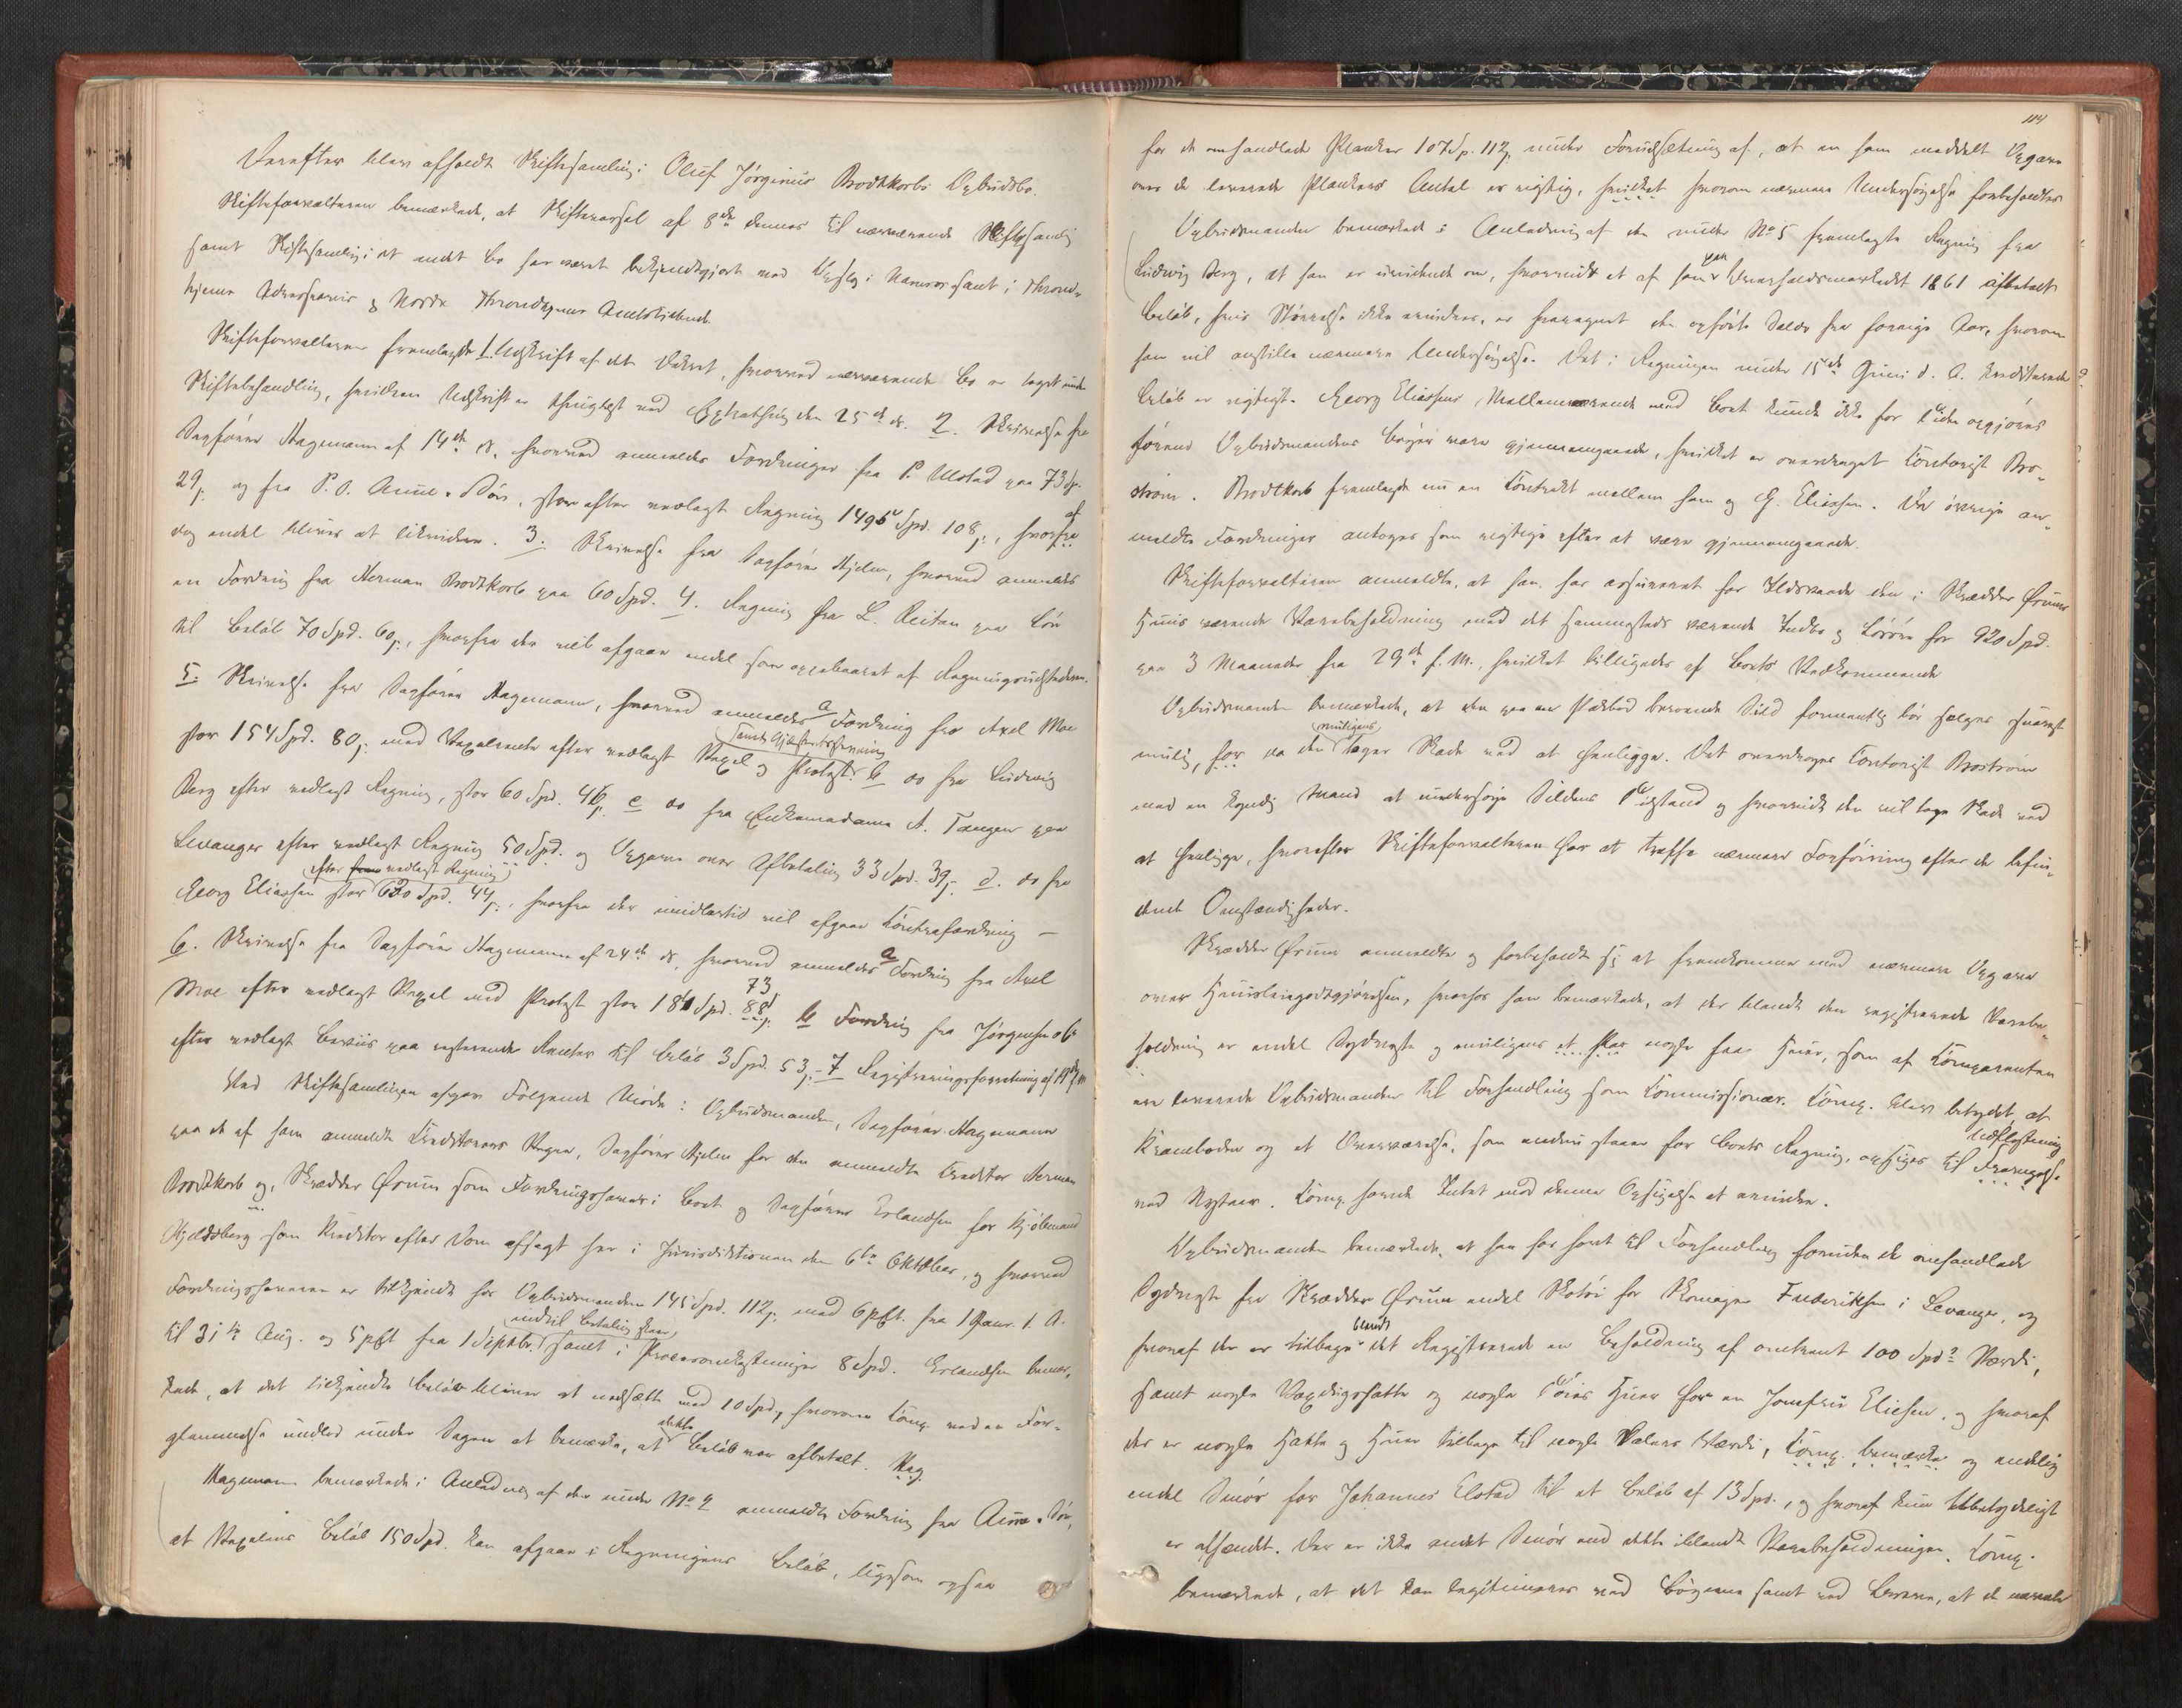 Derefter blev afholdt Skiftesamling i Oluf Jörginus Brodtkorbs Opbudsbo.
Skifteforvalteren bemærkede, at Skiftevarsel af 8de dennes til nærværende Skiftesamlg
samt Skiftesamling i et andet Bo har været bekjendtgjort ved Opslag i Namsos samt i Thrond-
hjems Adresseavis og Nordre Throndhjems Amtstidende.
Skifteforvalteren fremlagde 1. Udskrift af det Dekret, hvorved nærværende Bo er taget under
Skiftebehandling, hvilken Udskrift er thinglyst ved Extrathing den 25de ds. 2. Skrivelse fra
Sagförer Hagemann af 14de ds. hvorved anmeldes Fordringer fra P. Ulstad paa 73 Sp.
29 s. og fra P. O. Aune & Sön, stor efter vedlagt Regning 1495 Spd. 108 s., hvoraf
dog endel bliver at likvidere. 3. Skrivelse fra Sagförer Hjelm, hvorved anmeldes
en Fordring fra Herman Brodtkorb paa 60 Spd. 4. Regning fra L. Reitan paa Lön
til Beløb 70 Spd. 60 s., hvorfra der vil afgaae endel som oppebaaret af Regningsudstederen.
5. Skrivelse fra Sagförer Hagemann, hvorved anmeldes a Fordring fra Axel Moe
stor 154 Spd. 80 s. med Vexelrente efter vedlagt Vexel og Protest. b do fra Ludvig
Berg efter vedlagt Regning, stor 60 Spd. 46 s. c do fra Enkemadame A. Tangen paa
Levanger efter vedlagt Regning 50 Spd. og Opgave over Afbetaling 33 Spd. 39 s. d. do fra
efter vedlagt Regning
Georg Eliassen stor 620 Spd. 44 s., hvorfra der imidlertid vil afgaae Kontrafordring —
6. Skrivelse fra Sagförer Hagemann af 24de ds, hvorved anmeldes a Fordring fra Axel
73
Moe efter vedlagt Vexel med Protest stor 181 Spd. 88 s. b Fordring fra Jörgensen & Co
efter vedlagt Beviis paa resterende Renter til Beløb 3 Spd. 53 s. – 7 Registreringsforretning af
Ved Skiftesamlingen afgav Følgende Möde: Opbudsmanden, Sagförer Hagemann
paa de af ham anmeldte Kreditorers Vegne, Sagförer Hjelm for den anmeldte Kreditor Herman
Brodtkorb og, Skrædder Ørum som Fordringshaver i Boet og Sagförer Erlandsen for Kjöbmand
Kjeldsberg som Kreditor efter Dom afsagt her i Jurisdiktionen den 6te Oktober, og hvorved
Fordringshaveren er tilkjendt hos Opbudsmanden 145 Spd. 112 s. med 6 pCt. fra 1 Janr. l. A.
indtil Betaling skeer,
til 31te Aug. og 5 pCt fra 1 Septbr. samt i Procesomkostninger 8 Spd. Erlandsen bemær-
kede, at det tilkjendte Beløb bliver at nedsætte med 10 Spd., hvorom Komp. ved en For-
glemmelse undlod under Sagen at bemærke, at dette Beløb var afbetalt. Hag.
Hagemann bemærkede i Anledning af den under No 2 anmeldte Fordring fra Aune & Sön,
at Vexelens Beløb 150 Spd. kan afgaae i Regningens Beløb, ligesom ogsaa
114
for de omhandlede Planker 107 Sp. 112 s. under Forudsætning af, at en ham meddelt Opgave
over de leverede Plankers Antal er rigtig, hvilket hvorom nærmere Undersögelse forbeholdtes
Opbudsmanden bemærkede i Anledning af den under No 5 fremlagte Regning fra
Ludvig Berg, at han er uvidende om, hvorvidt et af ham paa Levangsmarkedet 1861 afbetalt
Beløb, hvis Störrelse ikke erindres, er fraregnet den opförte Saldo fra forrige Aar, hvorom
han vil anstille nærmere Undersögelse. Det i Regningen under 15de Juni d. A. krediterede
Beløb er rigtigt. Georg Eliassens Mellemværende med Boet kunde ikke for Tiden opgjöres
förend Opbudsmandens Böger vare gjennemgaaede, hvilket er overdraget Kontorist Bro-
ström. Brodtkorb fremlagde nu en Kontrakt mellem ham og G. Eliassen. De övrige an-
meldte Fordringer antoges som rigtige efter at være gjennemgaaede.
Skifteforvalteren anmeldte, at han har assureret for Ildsvaade den i Skrædder Ørums
Huus værende Varebeholdning med det Sammesteds værende Indbo og Lösöre for 920 Spd.
paa 3 Maaneder fra 29de f. M., hvilket billigedes af Boets Vedkommende
Opbudsmanden bemærkede, at den paa en Söebod beroende Sild formentlig bör sælges snarest
mulig, for da den muligens tager Skade ved at henligge. Det overdroges Kontorist Broström
med en kyndig Mand at undersöge Sildens Tilstand og hvorvidt den vil tage Skade ved
at henligge, hvorefter Skifteforvalteren har at træffe nærmere Forföining efter de befin-
dende Omstændigheder.
Skrædder Ørum anmeldte og forbeholdt sig at fremkomme med nærmere Opgave
over Huusleiegodtgjörelsen, hvorhos han bemærkede, at der blandt den registrerede Varebe-
holdning er endel Söydvæste og muligens et Par nogle faa Huer, som af Komparenten
ere leverede Opbudsmanden til Forhandling som Kommissionær. Komp. blev betydet, at
Kramboden og et Overværelse, som endnu staaer for Boets Regning, opsiges til Udflytning Fravigelse
ved Nytaar. Komp. havde Intet mod denne Opsigelse at erindre.
Opbudsmanden bemærkede, at han har havt til Forhandling foruden de omhandlede
Sydveste fra Skrædder Ørum endel Skotöi for Skomager Frederiksen i Levanger, og
hvoraf der er tilbage blandt det Registrerede en Beholdning af omtrent 100 Spd. Værdi,
samt nogle Voxdugshatte og nogle Töies Huer for en Jomfru Eliesen, og hvoraf
der er nogle Hatte og Huer tilbage til nogle Dalers Værdi, Komp. bemærke og endelig
endel Smör for Johannes Elstad til et Beløb af 13 Spd., og hvoraf kun Ubetydeligt
er afhændt. Der er ikke andet Smör end dette iblandt Varebeholdningen. Komp.
bemærkede, at det kan legitimeres ved Bögerne samt ved Breve, at de nævnte